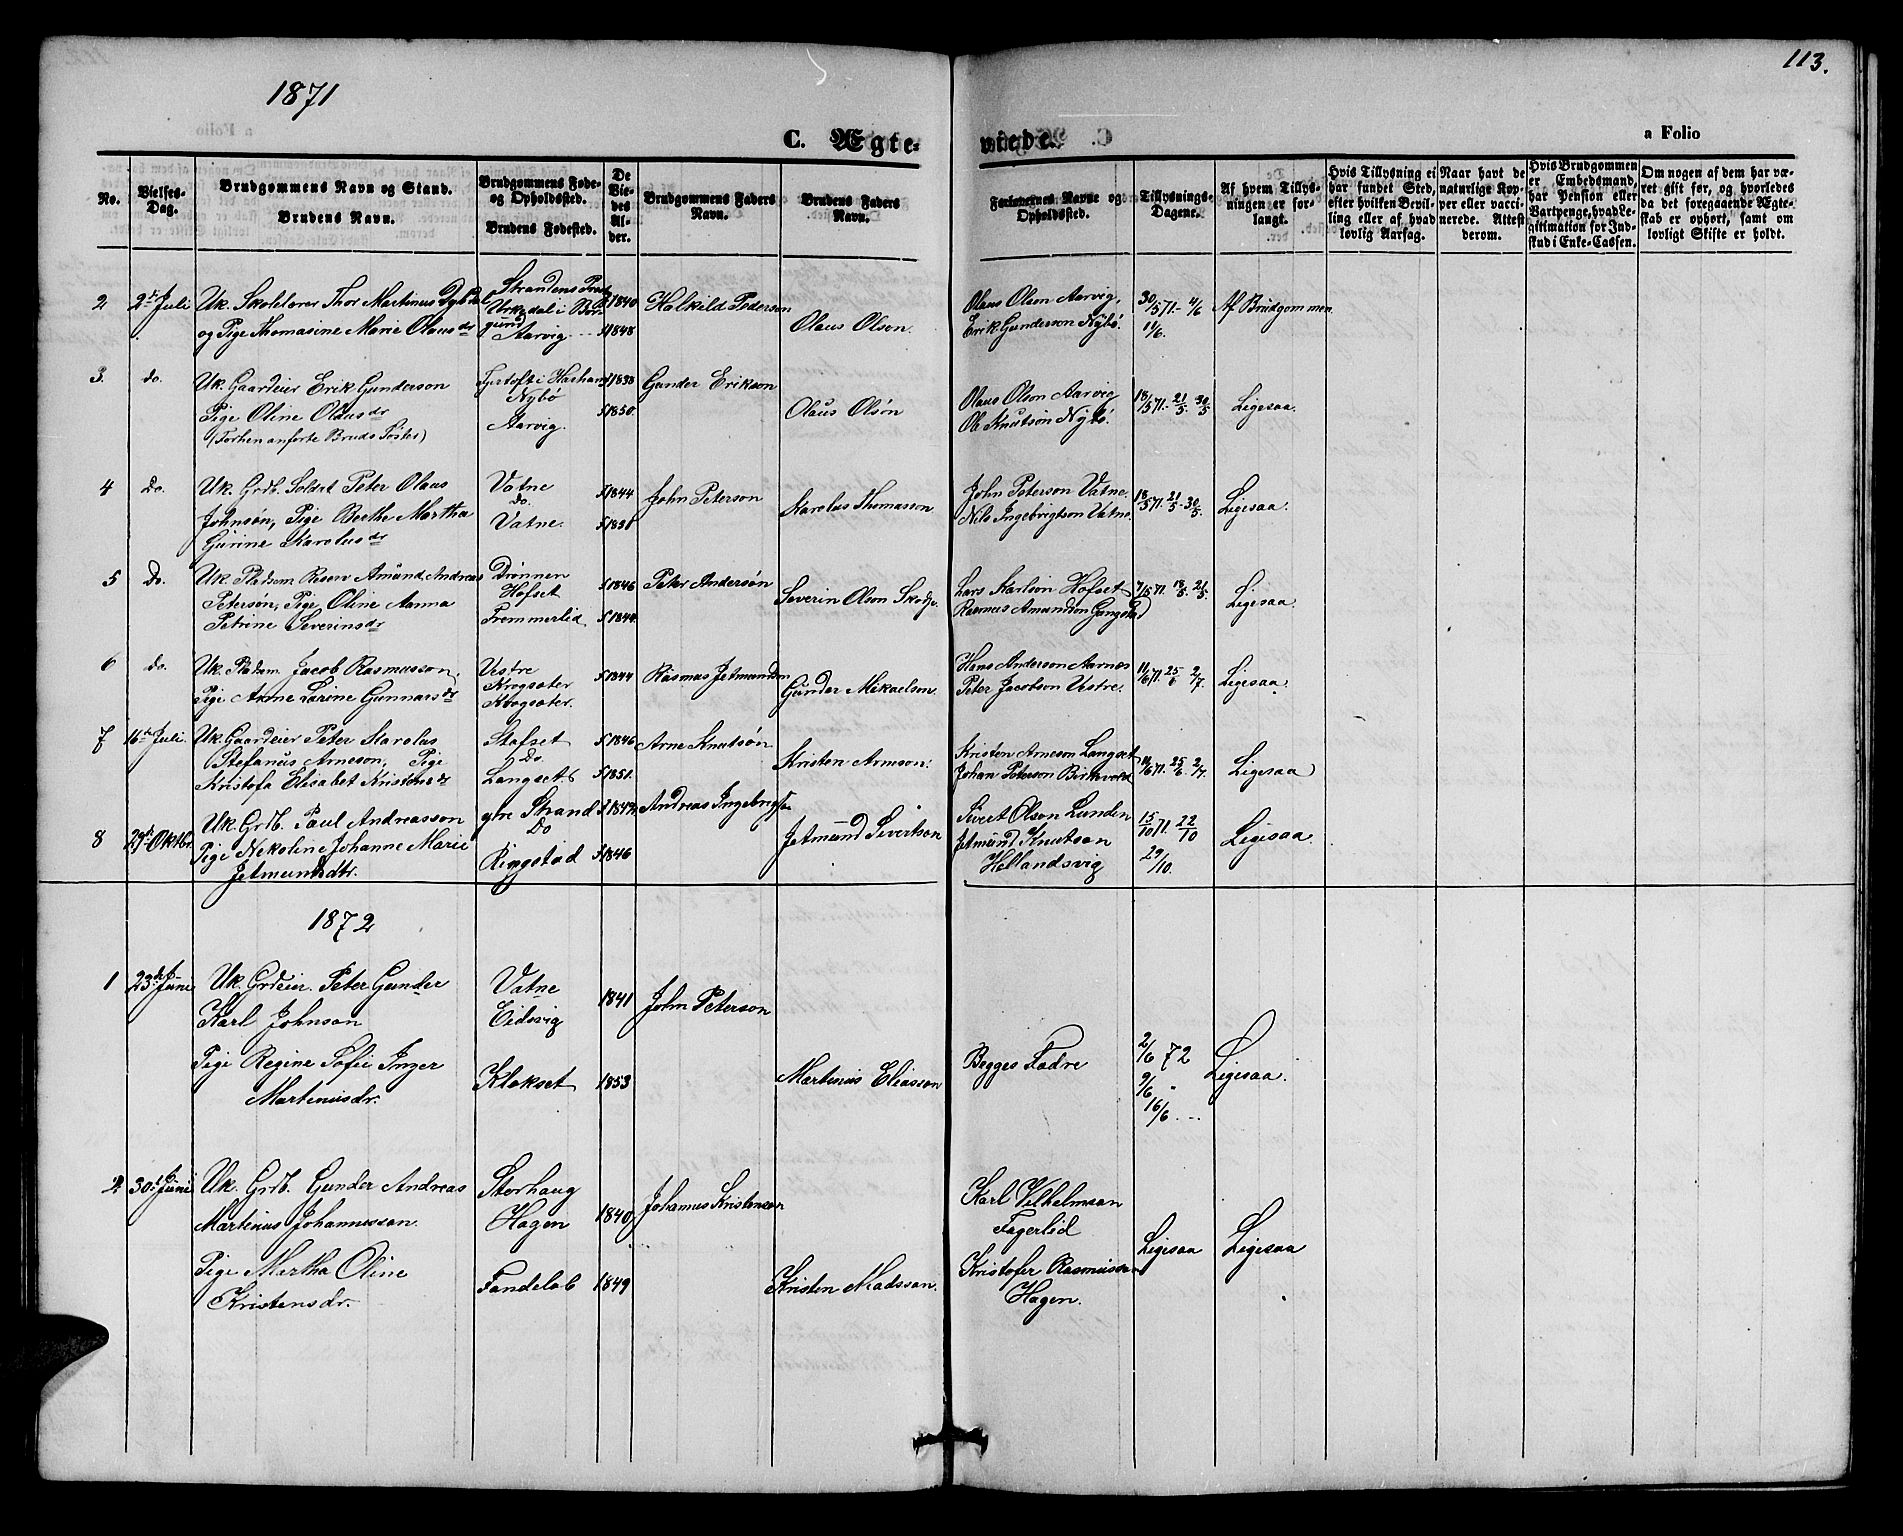 113.
1871
a Folio
C. Ægte- viede.
No.
Vielses-Dag.
Brudgommens Navn og Stand.
Brudens Navn.
Brudgommens Føde- og Opholdssted.
Brudens Fødested.
De Viedes Alder.
Brudgommens Faders Navn.
Brudens Faders Navn.
Forlovernes Navne og Opholdssted.
Tillysnings-Dagene.
Af hvem Tillysningen er forlangt.
Hvis Tillysning ei har fundet Sted, efter hvilken Bevilling eller af hvad lovlig Aarsag.
Naar havt de naturlige Kopper eller vaccinerede. Attest derom.
Hvis Brudgommen er Embedsmand, har Pension eller Vartpenge, hvad Legitimation for Indskud i Enke-Cassen.
Om nogen af dem har været gift før, og hvorledes da det foregaaende Ægteskab er ophørt, samt om lovligt Skifte er holdt.
2 2den Juli Uk. Skolelærer Thor Martinus Dybdal 1840 Halkild Pederson Olaus Olson Aarvig, 30/5 71. 4/6 Af Brudgommen
og Pige Thomasine Marie Olausdr Aarvig 1848 Olaus Olson. Erik Gunderson Nybø. 11/6.
3. do. Uk. Gaardeier Erik Gunderson Nybø 1838 Gunder Erikson Olaus Olson Aarvig 18/5 71. 21/5 30/5 Ligesaa.
Pige Oline Olausdr Aarvig. 1850. Olaus Olsøn Ole Knutsøn Nybø.
(Forhen anførte Bruds Søster)
4 Do. Uk. Grdb. Soldat Peter Olaus Vatne 1844 John Peterson John Peterson Vatne. 18/5 71. 21/5. 30/5. Ligesaa.
Johnsøn, Pige Berthe Martha do. Karolus Thomasson Nils Ingebrigtson Vatne.
Gurine Karolusdr Vatne. 1851
5 Do. Uk. Pladsm. Reserv Amund Andreas Drønnen 1846 Peter Andersøn Lars Karlson Hofset 7/5 71. 18/5. 21/5. Ligesaa.
Petersøn, Pige Oline Anna Hofset Severin Olson Skodje. Rasmus Amundson Gangstad
Petrine Severinsdr Fremmerlid 1844
6 do. Uk. Pladsm. Jacob Rasmusson, Vestre 1844 Rasmus Jetmundson Hans Anderson Aarnes 11/6 71. 25/6 2/7. Ligesaa.
Pige Anne Larine Gunnarsdr Krogsæter Gunder Mikaelson. Peter Jacobson Vestre.
Krogsæter.
7 16de Juli. Uk. Gaardeier Peter Karolus Stafset 1846 Arne Knutsøn Kristen Arneson Langset 11/6 71. 25/6. 2/7. Ligesaa
Stefanus Arneson, Pige Do. Kristen Arneson. Johan Peterson
Kristofa Elisabet Kristensdr Langset. 1851.
8 29de Oktbr. Uk. Grdb. Paul Andreasson ytre Strand Andreas Ingebrigtsøn Sivert Olson Lunden 15/10 71. 22/10 Ligesaa.
Pige Nekoline Johanne Marie Do Jetmund Sivertson Jetmund Knutson 29/10.
Jetmundsdtr. Ringstad 1846 Hellandsvig
1872
1 23de Juni Uk. Grdeier. Peter Gunder Vatne 1841 John Peterson
Karl Johnson Eidsvig
Pige Regine Sofie Inger Klokset 1853 Martinus Eliasson Begges Fædre 2/6 72 Ligesaa.
Martinusdr. 9/6 "
16/6. --
2 30te Juni Uk. Grdb. Gunder Andreas Storhaug 1840 Johannes Kristenson Karl Vilhelmsen Ligesaa Ligesaa
Martinus Johannesson. Hagen Fagerlid
Pige Martha Oline Fandeløb 1849 Kristen Madsson. Kristofer Rasmusson
Kristensdr. Hagen.